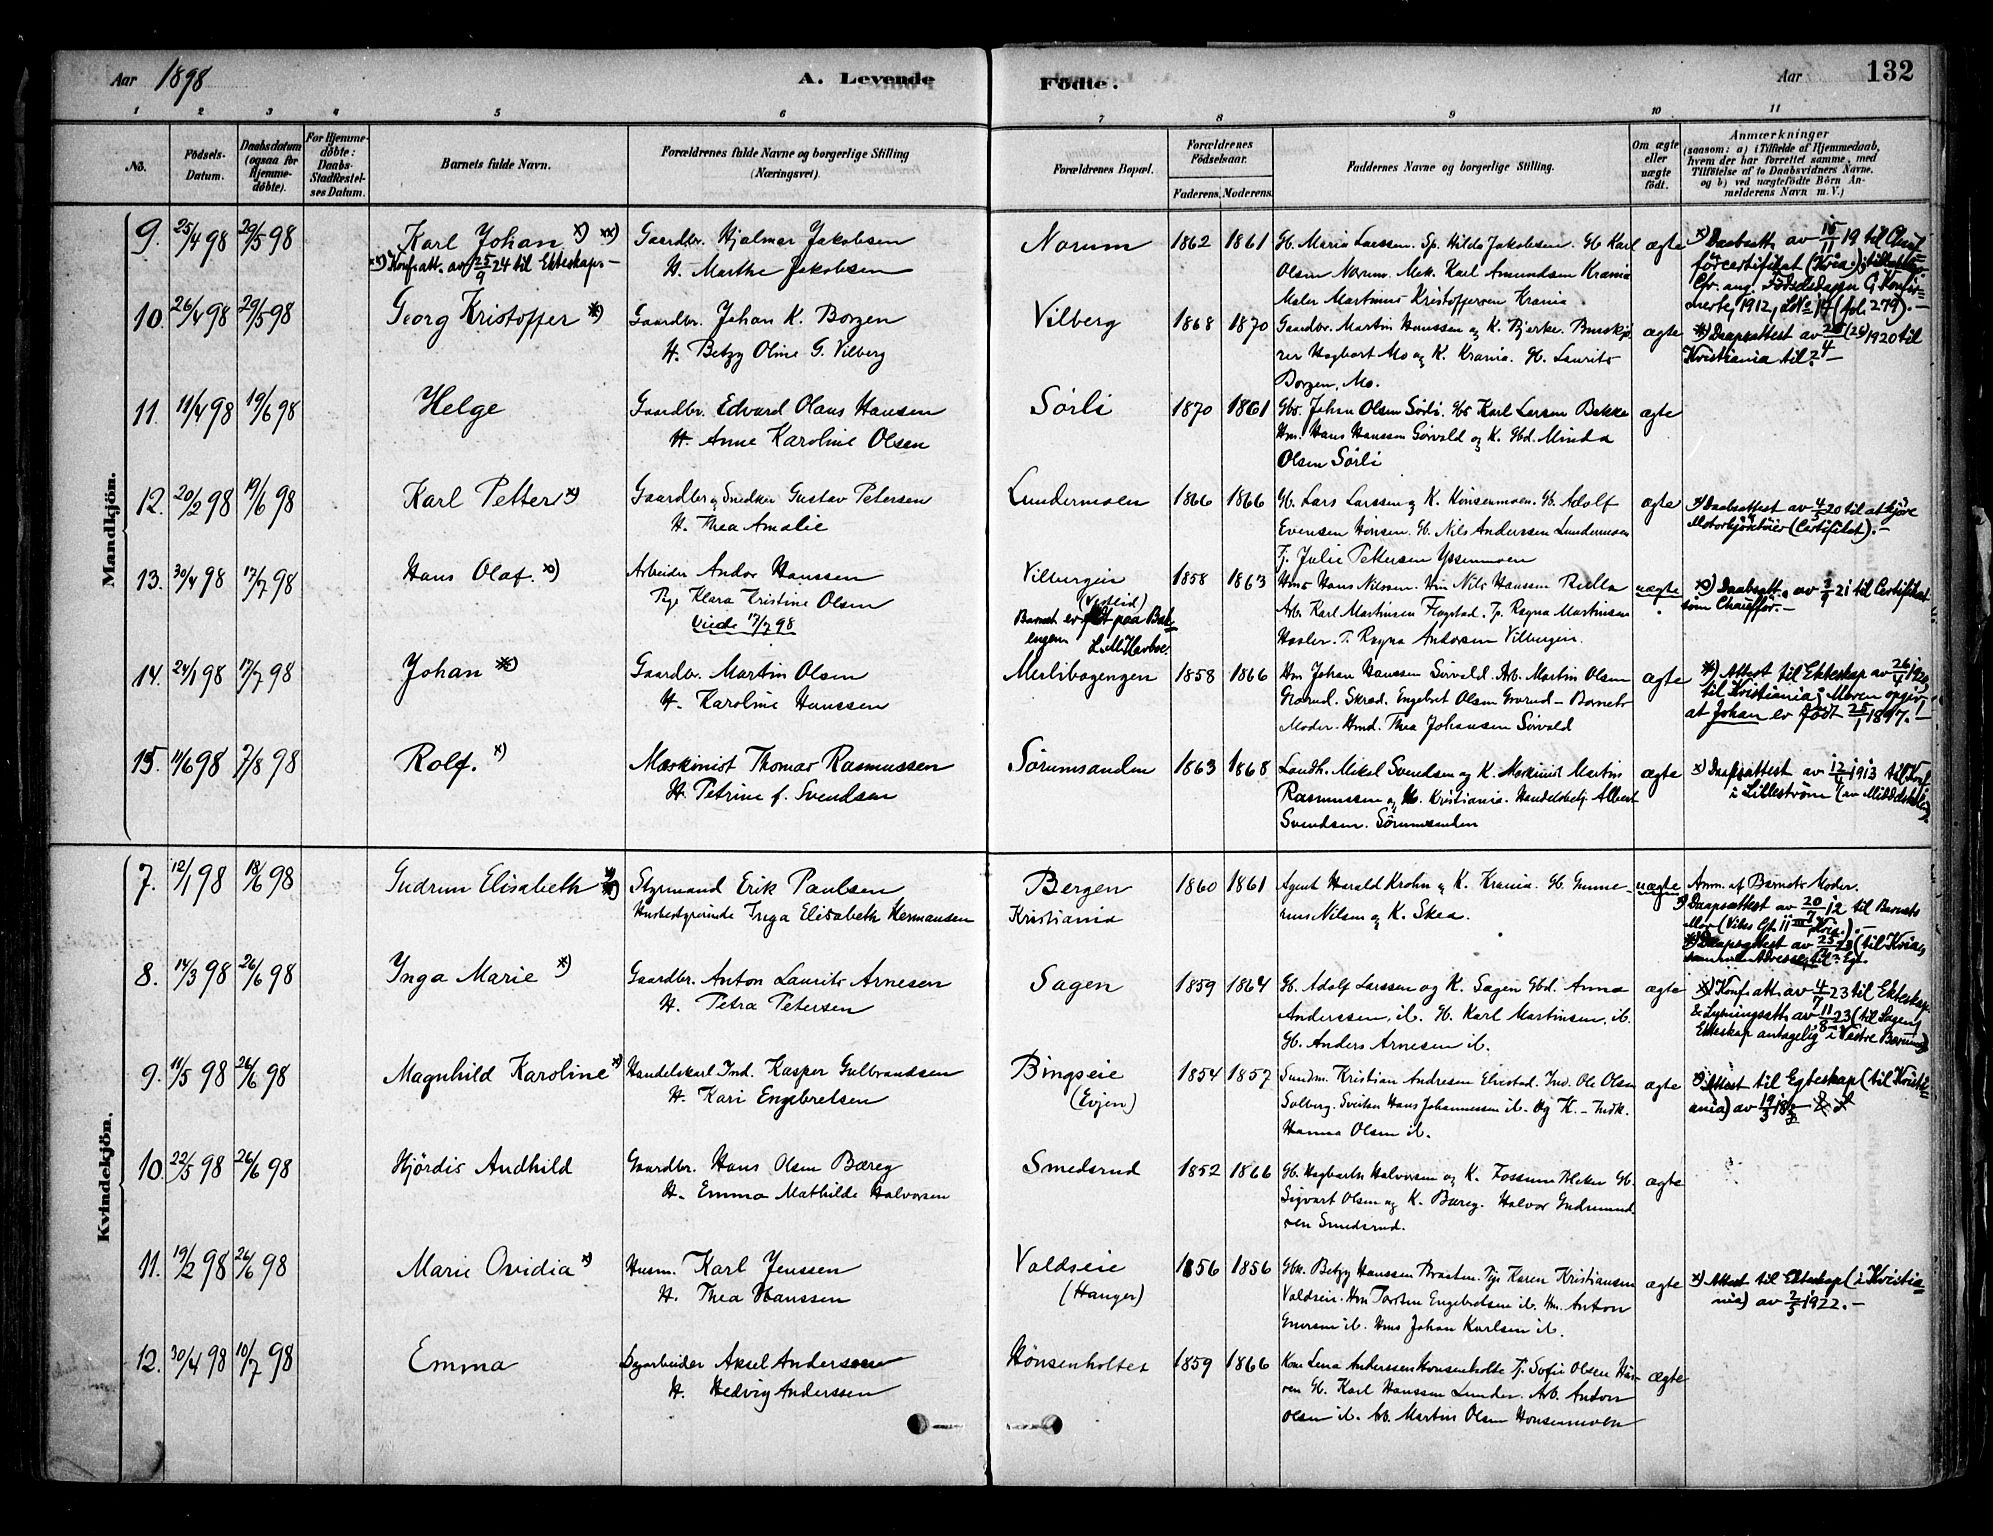 Aar 1898
A. Levende
Fødte.
Aar
132
1 2 3 4 5 6 7 8 9 10 11
No.
Fødsels-Datum.
Daabsdatum (ogsaa for Hjemmedøbte).
For Hjemmedøbte: Daabs-Stadfæstelses Datum.
Barnets fulde Navn.
Forældrenes fulde Navne og borgerlige Stilling (Næringsvei).
Forældrenes Bopæl.
Forældrenes Fødselsaar.
Faderens. Moderens.
Faddernes Navne og borgerlige Stilling.
Om ægte eller uægte født.
Anmærkninger (saasom: a) i Tilfælde af Hjemmedaab, hvem der har forrettet samme, med Tilføielse af to Daabsvidners Navne. og b) ved uægtefødte Börn Anmelderens Navn m. V.)
Mandkjön.
9. 25/4 98 29/5 98 Karl Johan x) xx)
xx) Konf.att. av 25/9 24 til Ekteskap.-
Gaardbr. Hjalmar Jakobsen
H. Marthe Jakobsen
Norum 1862 1861
Gb. Marie Larssen. Sp. Hilda Jakobsen. Gb Karl
Olsen Norum. Mek. Karl Amundsen Krania
Maler Martinus Kristoffersen Krania
ægte
x) Daabsatt. av 15/11 19 til
förcertifikat (Kria.)
Cfr. ang. Fødselsdagen Konfir-
merte, 1912, No 14 (fol. 279).-
10. 26/4 98 29/5 98 Georg Kristoffer x)
Gaardbr. Johan K. Borgen
H. Betzy Oline G. Vilberg
Vilberg 1868 1870
Gaardbr. Martin Hanssen og K. Bjerke.
rer Hagbart Mo og K. Krania. Gb. Laurits
Borgen, Mo.
ægte
x) Daapsattest av 1920 til
Kristiania
11. 11/4 98 19/6 98 Helge
Gaardbr. Edvard Olaus Hansen
H. Anne Karoline Olsen
Sörli 1870 1861
Gbr. Johan Olsen Sörli. Gbr Karl Larsen Bakke
Hm. Hans Hanssen Sörvald og K. Gbd. Minda
Olsen Sörli
ægte
12. 20/2 98 19/6 98 Karl Petter x)
Gaardbr og Snedker Gustav Petersen
H. Thea Amalie
Lundermoen 1866 1866
Gb. Lars Larssen og K. Hönsenmoen. Gb. Adolf
Evensen Honsen. Gb. Nils Anderssen Lundermoen
Tj. Julie Pettersen Yssenmoen
ægte
x) Daabsattest av 4/5 20 til at kjöre
Motorkjöretöier (Certifikat).-
13. 30/4 98 17/7 98 Hans Olaf. x)
Arbeider Andor Hanssen
Pige Klara Kristine Olsen
Viede 17/7 98
Vilbergeie
(Vestlid)
Barnet er født paa
engem Lille
1858 1863
Hms Hans Nilssen. Hm Nils Hanssen Rulla
Arb. Karl Martinsen Flogstad. Tj. Ragna Martinsen
Hasler. T. Ragna Andersen Vilbergeie.
uægte
x) Daabsatt. av 2/9 21 til Certifikat
som Chauffør.-
14. 24/1 98 17/7 98 Johan x)
Gaardbr. Martin Olsen
H. Karoline Hanssen
Merlibagengen 1858 1866
Hm Johan Hanssen Sörvald. Arb. Martin Olsen
Grorud. Skræd. Engebret Olsen Grorud - Barnets
Moder. Hmd. Thea Johansen Sørvald
ægte
x) Attest til Ekteskap av 26/4
til Kristiania; Moren opgir,
at Johan er født 25/1 1897.-
15. 11/6 98 7/8 98 Rolf. x)
Maskinist Thomas Rasmussen
H. Petrine f. Svendsen
Sørumsanden 1863 1868
Landh. Mikal Svendsen og K. Maskinist Martin
Rasmussen og H. Kristiania. Handelsbetj. Albert
Svendsen. Sørumsanden
ægte
x) Daapsattest av 12/4 1913 til Konf
i Lilleström (av Middelskolen)
Kvindekjön.
7. 12/1 98 18/6 98 Gudrun Elisabeth
Styrmand Erik Paulsen
Husbestyrerinde Inga Elisabeth Hermansen
Bergen
Kristiania
1860 1861
Agent Harald Krohn og K. Krania. Gb. Gunne-
rius Nilsen og K. Skea.
uægte
Anm. af Barnets Moder.
x) Daapsattest av 20/7 12 til Barnets
Mor (Vibes Gt. 11 III, Kria.).-
Daapsattest av (til Kria,
samme Adresse)
8. 14/3 98 26/6 98 Inga Marie x)
Gaardbr. Anton Laurits Arnesen
H. Petra Petersen
Sagen 1859 1864
Gb. Adolf Larssen og K. Sagen Gbd. Anna
Anderssen, ib. Gb. Karl Martinsen, ib.
Gb. Anders Arnesen ib.
ægte
x) Konf.att. av 4/7 23 til Ekteskap
& Lysningsatt. av 11/8 23 (til Sagen,
Ekteskap antagelig i Vestre Bærum)
9. 11/5 98 26/6 98 Magnhild Karoline x)
Handelskarl Ind. Kasper Gulbrandsen
H. Kari Engebretsen
Bingseie
(Evjen)
1854 1857
Sundm. Kristian Andresen Elvestad. Ind. Ole Olsen
Solberg. Hans Johannessen ib. og K. - Indk.
Hanna Olsen ib.
ægte
x) Attest til Egteskap (til Kristi-
ania) av
10. 22/5 98 26/6 98 Hjördis Andhild
Gaardbr. Hans Olsen Bæreg
H. Emma Mathilde Halvorsen
Smedsrud 1852 1866
Gb. Hagbarth Halvorsen og K. Fossum Gb.
Sigvart Olsen og K. Bæreg. Halvor Gudmund
sen Smedsrud.
ægte
11. 19/2 98 26/6 98 Marie Ovidia x)
Husm. Karl Jenssen
H. Thea Hanssen
Valdseie
(Hanger)
1856 1856
Gbk. Betzy Hanssen Braaten. Pige Karen Kristiansen
Valdseie. Hm Torsten Engebretsen ib. Hm. Anton
ib. Hms Johan Karlsen ib.
ægte
x) Attest til Ekteskap (i Kristia-
nia) av 2/3 1922.-
12. 30/4 98 10/7 98 Emma
Dagarbeider Aksel Anderssen
H. Hedvig Anderssen
Hönsenholtet 1859 1866
Kone Lena Anderssen Honsenholte Tj. Sofie Olsen
Gb. Karl Hanssen Lunder. Arb. Anton
Olsen ib. Arb. Martin Olsen Honsenmoen
ægte